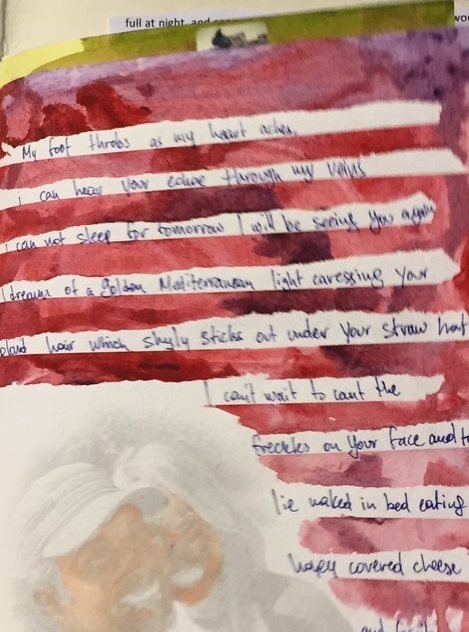 full at night, and
My foot throbs as my heart aches,
i can hear your echoe through my veins
I can not sleep for tomorrow I will be seeing you again
I dream of a golden Mediterranean light caressing your
hair which shyly sticks out under your straw hat
I can't wait to count the
freckles on your face and to
lie naked in bed eating
honey covered cheese
and